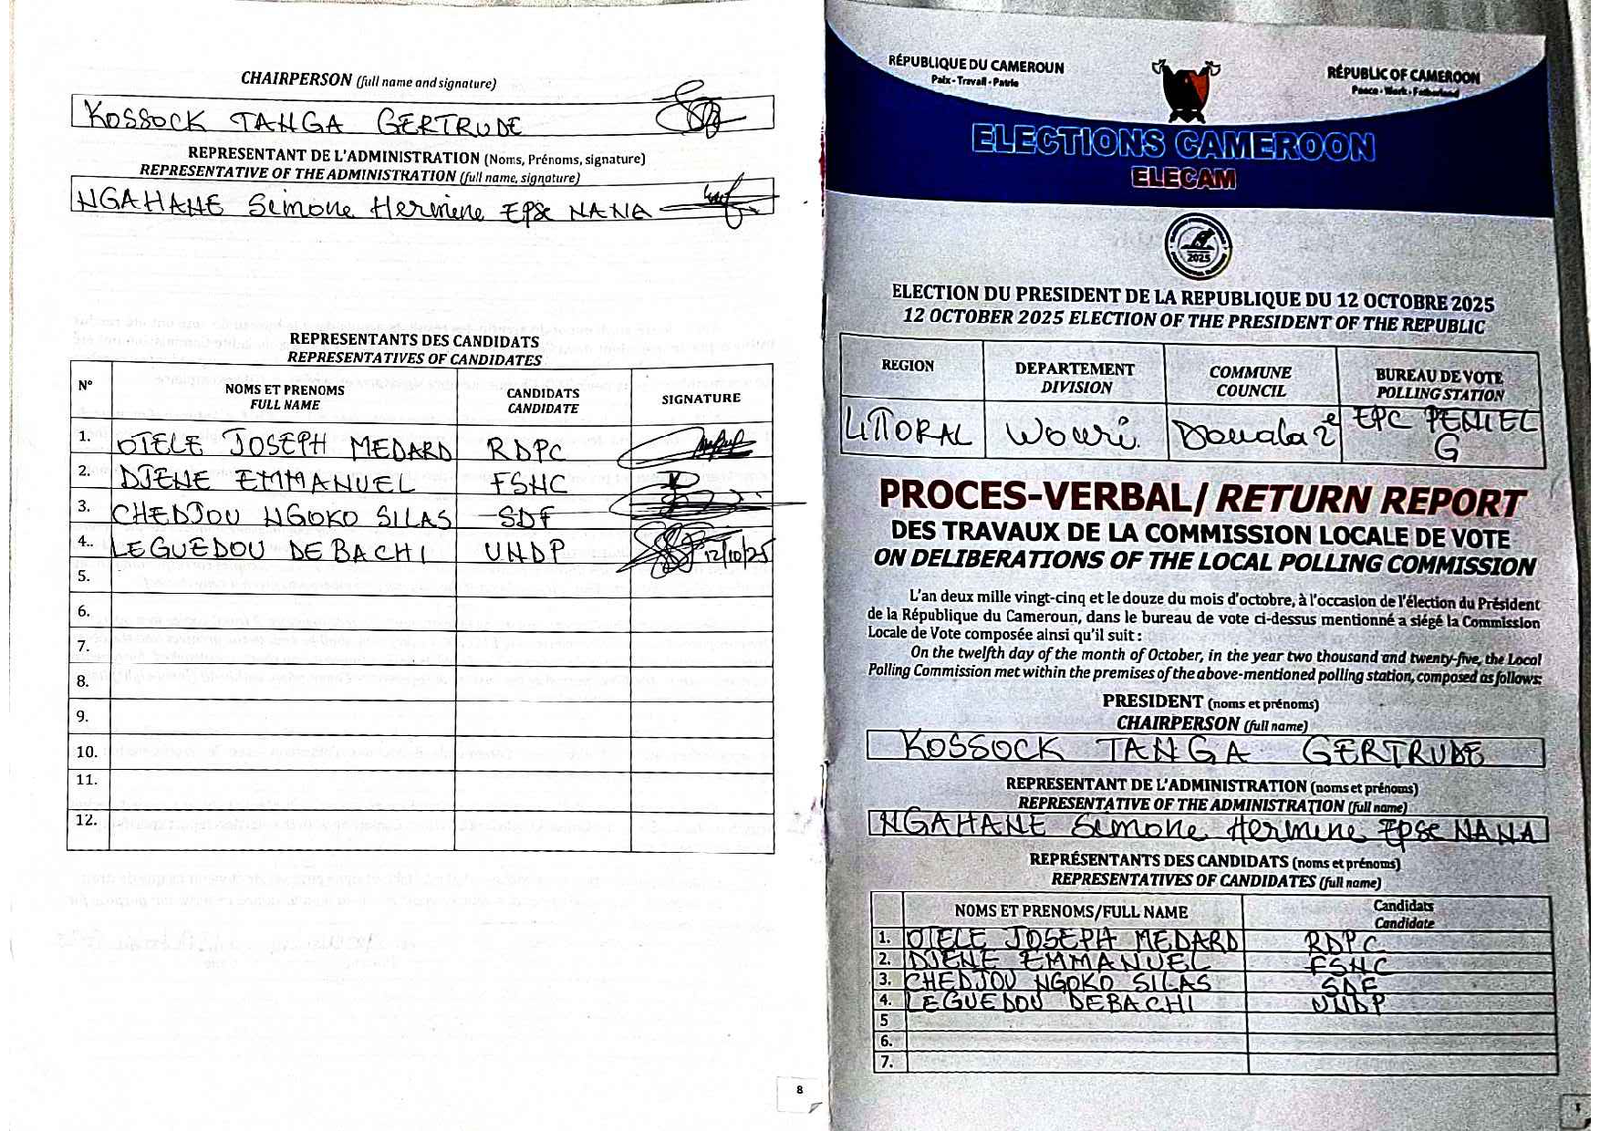 CHAIRPERSON (full name and signature)
KOSSOCK TANGA GERTRUDE
REPRESENTANT DE L'ADMINISTRATION (Noms, Prénoms, signature)
REPRESENTATIVE OF THE ADMINISTRATION (full name, signature)
NGAHANE Simone Hermine Epse NANA
REPRESENTANTS DES CANDIDATS
REPRESENTATIVES OF CANDIDATES
N° NOMS ET PRENOMS FULL NAME CANDIDATS CANDIDATE SIGNATURE
1. OTELE JOSEPH MEDARD RDPC
2. DJENE EMMANUEL FSNC
3. CHEDJOU NGOKO SILAS SDF
4. LEGUEDOU DEBACHI UNDP 12/10/25
5.
6.
7.
8.
9.
10.
11.
12.
8
RÉPUBLIQUE DU CAMEROUN
Paix - Travail - Patrie
RÉPUBLIC OF CAMEROON
Peace - Work - Fatherland
ELECTIONS CAMEROON
ELECAM
2025
ELECTION DU PRESIDENT DE LA REPUBLIQUE DU 12 OCTOBRE 2025
12 OCTOBER 2025 ELECTION OF THE PRESIDENT OF THE REPUBLIC
REGION DEPARTEMENT DIVISION COMMUNE COUNCIL BUREAU DE VOTE POLLING STATION
LITTORAL Wouri. Douala 2e EPC PENIEL G
PROCES-VERBAL/RETURN REPORT
DES TRAVAUX DE LA COMMISSION LOCALE DE VOTE
ON DELIBERATIONS OF THE LOCAL POLLING COMMISSION
L'an deux mille vingt-cinq et le douze du mois d'octobre, à l'occasion de l'élection du Président
de la République du Cameroun, dans le bureau de vote ci-dessus mentionné a siégé la Commission
Locale de Vote composée ainsi qu'il suit :
On the twelfth day of the month of October, in the year two thousand and twenty-five, the Local
Polling Commission met within the premises of the above-mentioned polling station, composed as follows:
PRESIDENT (noms et prénoms)
CHAIRPERSON (full name)
KOSSOCK TANGA GERTRUDE
REPRESENTANT DE L'ADMINISTRATION (noms et prénoms)
REPRESENTATIVE OF THE ADMINISTRATION (full name)
NGAHANE Simone Hermine Epse NANA
REPRÉSENTANTS DES CANDIDATS (noms et prénoms)
REPRESENTATIVES OF CANDIDATES (full name)
NOMS ET PRENOMS/FULL NAME Candidats Candidate
1. OTELE JOSEPH MEDARD RDPC
2. DJENE EMMANUEL FSNC
3. CHEDJOU NGOKO SILAS SDF
4. LEGUEDOU DEBACHI UNDP
5
6.
7.
1